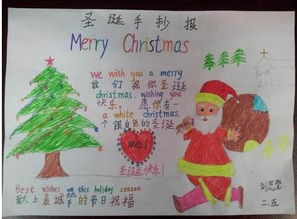 圣诞手抄报
Merry Christmas
we wish you a merry
我们祝你圣诞
christmas. wishing you
快乐，愿你有一
a white christmas.
个银白色的圣诞
Noel!
圣诞快乐!
Best wishes this holiday season
献上最诚挚的节日祝福
二.五